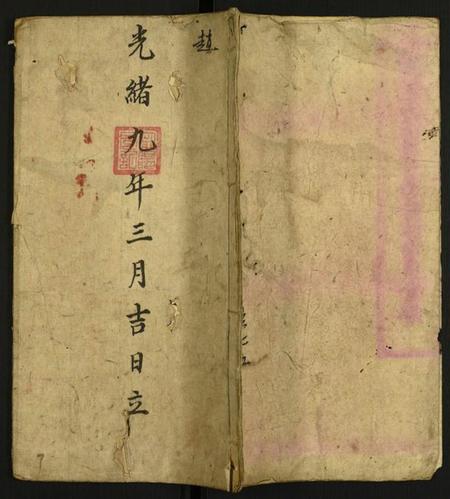 趙
光緒九年三月吉日立
7